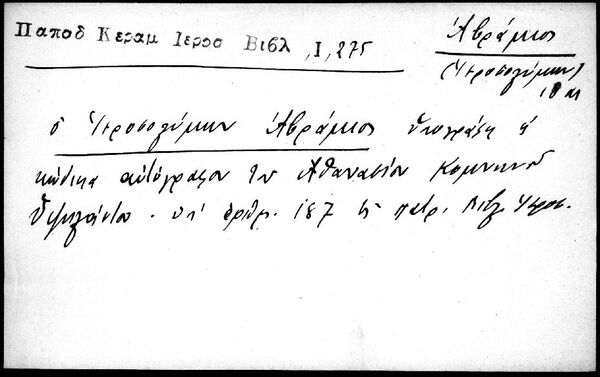 Παπαδ Κεραμ Ιεροσ Βιβλ , Ι, 275
Ἀβράμιος
(Ἱεροσολύμων)
18 αι
ὁ Ἱεροσολύμων Ἀβράμιος ὑπογράφει
κώδικα αὐτόγραφον τοῦ Ἀθανασίου Κομνηνοῦ
Ὑψηλάντου . ὑπ' ἀριθμ. 187 τῆς πατρ. Βιβλ Ἱεροσ.